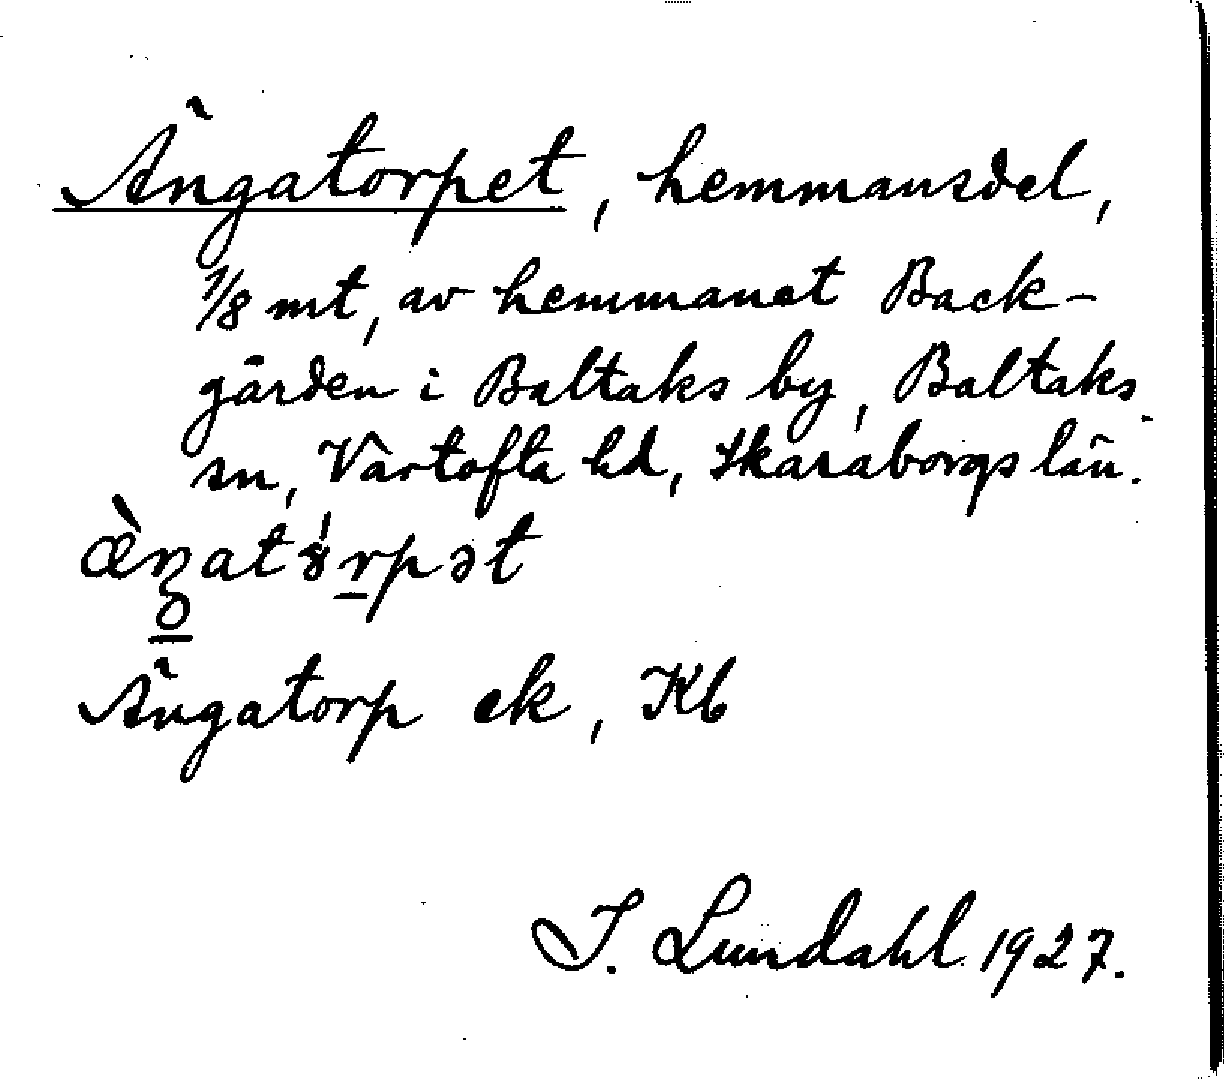 Ängatorpet, hemmansdel,
1/8 mt, av hemmanet Back-
gården i Baltaks by, Baltaks
sn, Vartofta hd, Skaraborgs län.
Ängatorp ek, Kb
I. Lundahl 1927.